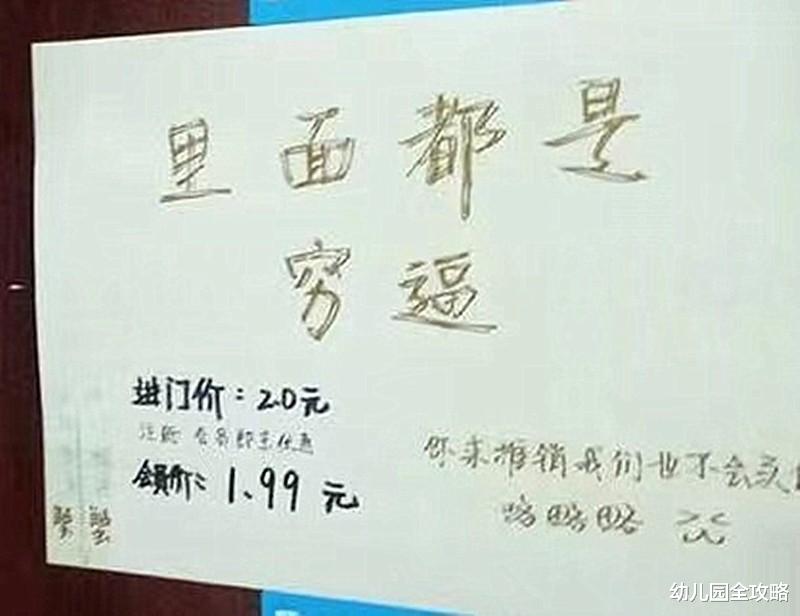 里面都是
穷逼
进门价：2.0元
注册 会员即享优惠
会員价：1.99 元
你来推销我们也不会买
略略略
蟹 蟹
幼儿园全攻略